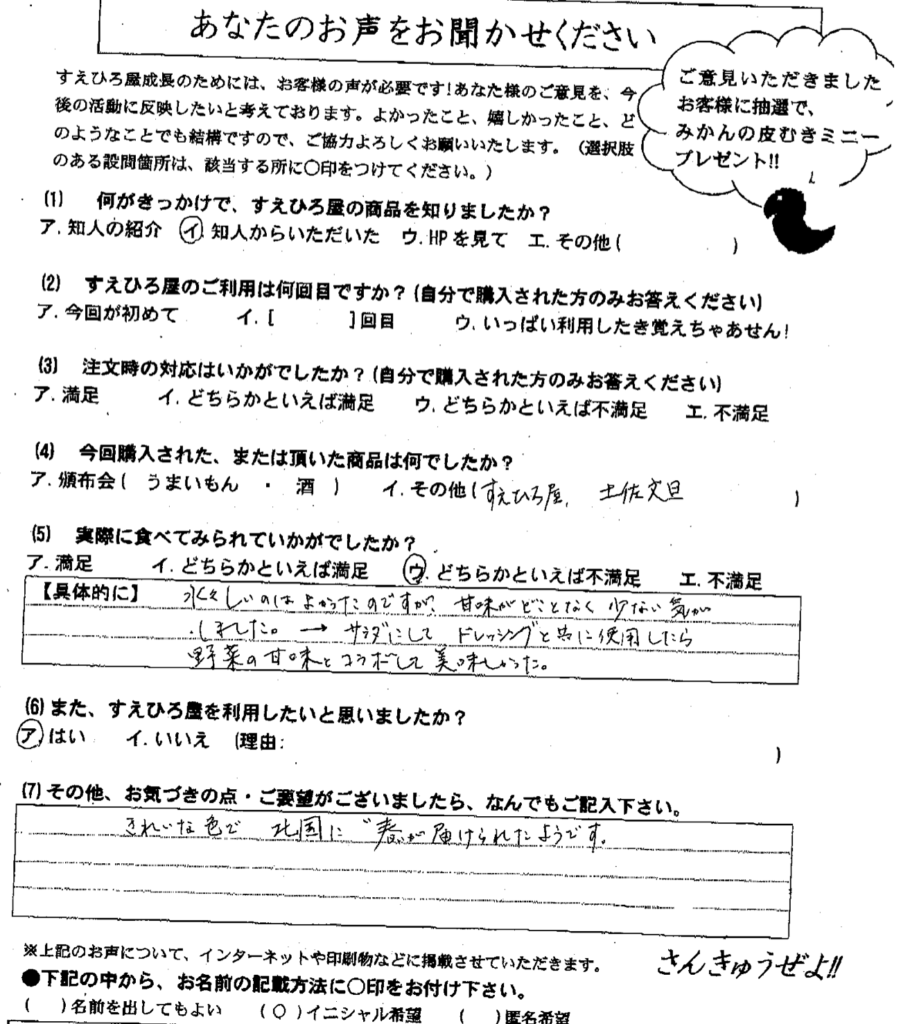 あなたのお声をお聞かせください
すえひろ屋成長のためには、お客様の声が必要です!あなた様のご意見を、今
後の活動に反映したいと考えております。よかったこと、嬉しかったこと、ど
のようなことでも結構ですので、ご協力よろしくお願いいたします。(選択肢
のある設問箇所は、該当する所に〇印をつけてください。)
ご意見いただきました
お客様に抽選で、
みかんの皮むきミニー
プレゼント!!
(1) 何がきっかけで、すえひろ屋の商品を知りましたか?
ア. 知人の紹介 イ. 知人からいただいた ウ. HPを見て エ. その他( )
(2) すえひろ屋のご利用は何回目ですか?(自分で購入された方のみお答えください)
ア. 今回が初めて イ. [ ]回目 ウ. いっぱい利用したき覚えちゃあせん!
(3) 注文時の対応はいかがでしたか?(自分で購入された方のみお答えください)
ア. 満足 イ. どちらかといえば満足 ウ. どちらかといえば不満足 エ. 不満足
(4) 今回購入された、または頂いた商品は何でしたか?
ア. 頒布会( うまいもん ・ 酒 ) イ. その他(すえひろ屋、土佐文旦 )
(5) 実際に食べてみられていかがでしたか?
ア. 満足 イ. どちらかといえば満足 ウ. どちらかといえば不満足 エ. 不満足
【具体的に】 水々しいのはよかったのですが、甘味がどことなく少ない気が
しました。→ サラダにして ドレッシングと共に使用したら
野菜の甘味とコラボして美味しかった。
(6) また、すえひろ屋を利用したいと思いましたか?
ア はい イ. いいえ (理由: )
(7) その他、お気づきの点・ご要望がございましたら、なんでもご記入下さい。
きれいな色で 北国に〝春〟が届けられたようです。
※上記のお声について、インターネットや印刷物などに掲載させていただきます。
さんきゅうぜよ!!
●下記の中から、お名前の記載方法に〇印をお付け下さい。
( )名前を出してもよい (〇)イニシャル希望 ( )匿名希望